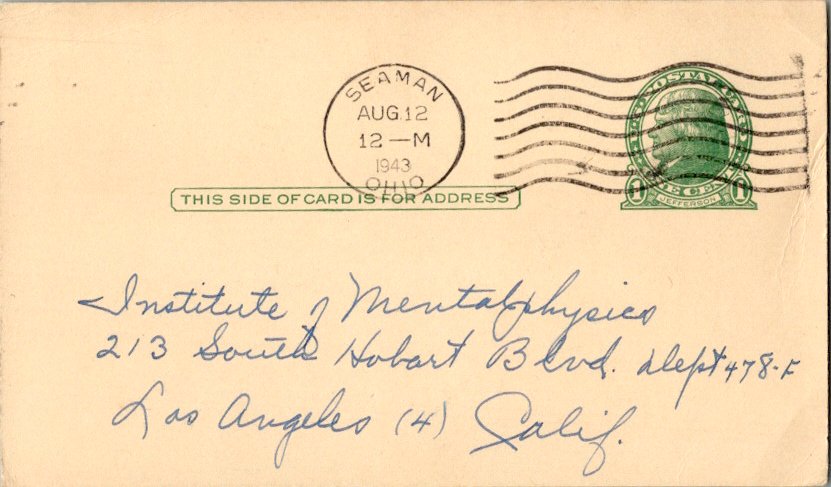 SEAMAN
AUG 12
12—M
1943
OHIO
U.S. POSTAL CARD
1 ONE CENT 1
JEFFERSON
THIS SIDE OF CARD IS FOR ADDRESS
Institute of Mentalphysics
213 South Hobart Blvd. Dept 478-F
Los Angeles (4) Calif.